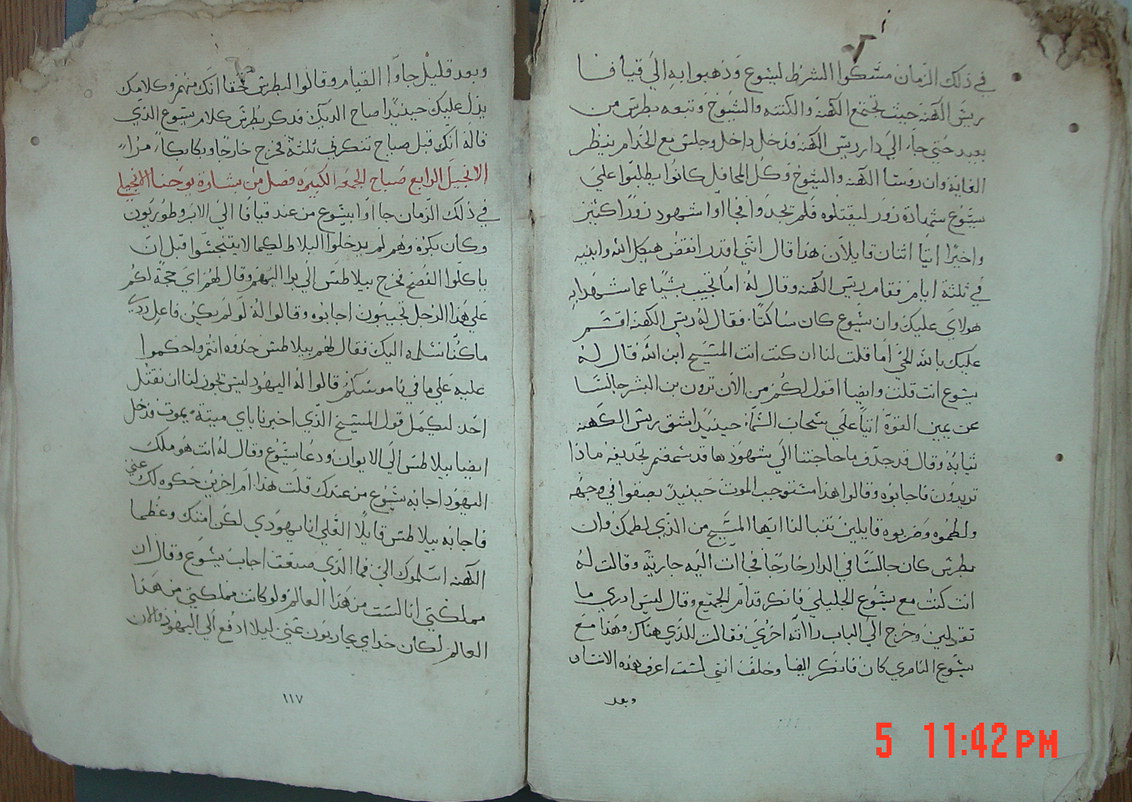 في ذلك الزمان مسكوا الشرط ليسوع وذهبوا به الي قيافا
ريس الكهنة حيث تجتمع الكهنه والكتبه والشيوخ وتبعه بطرس من
بعيد حتي جاء الي دار ريس الكهنه فدخل داخل وجلس مع الخدام لينظر
الغاية وان روسا الكهنه والشيوخ وكل المحافل كانوا يطلبوا علي
يسوع شهادة زور ليقتلوه فلم يجدوا فجاوا شهود زورا كثير
واخيرا اتيا اثنان قايلان هذا قال انني اقدر انقض هيكل الله وابنيه
في ثلثة ايام فقام ريس الكهنه وقال له اما تجيب بشيا عما شهد به
هولاي عليك وان يسوع كان ساكتا. فقال له ريس الكهنه اقسم
عليك بالله الحي اما قلت لنا ان كنت انت المسيح ابن الله قال له
يسوع انت قلت وايضا اقول لكم من الان ترون بن البشر جالسا
عن يمين القوة اتيا علي سحاب السما: حينيد شق ريس الكهنه
ثيابه وقال قد جدف ما حاجتنا الي شهود ها قد سمعتم تجديفه ماذا
تريدون فاجابوه وقالوا هذا مستوجب الموت حينيد بصقوا في وجهه
ولطموه وضربوه قايلين تنبا لنا ايها المسيح من الذي لطمك وان
بطرس كان جالسا في الدار خارجا فجاات اليه جارية وقالت له
انت كنت مع يسوع الجليلي فانكر قدام الجميع وقال ليس ادري ما
تقولين وخرج الي الباب راته اخري فقالت للذي هناك وهذا مع
يسوع الناصري كان فانكر ايضا وحلف انني لست اعرف هذه الانسان
وبعد
وبعد قليل جاوا القيام وقالوا لبطرس محققا انك منهم وكلامك
يدل عليك حينيدا صاح الديك فدكر بطرس كلام يسوع الذي
قاله انك قبل صياح تنكرني ثلثة فخرج خارجا وبكا بكاء مرا
الانجيل الرابع صباح الجمعه الكبيره فصل من بشارة يوحنا الانجيلي
في ذلك الزمان جا اوا بيسوع من عند قيافا الي الابروطوريون
وكان بكره وهم لم يدخلوا البلاط لكيما لا يتنجسوا قبل ان
ياكلوا الفصح فخرج بيلاطس الي برا اليهم وقال لهم اي حجة لكم
علي هذا الرجل تجيبون اجابوه وقالوا له لو لم يكن فاعل ردي
ما كنا نسلمه اليك فقال لهم بيلاطس خدوه انتم واحكموا
عليه علي ما في ناموسكم قالوا له اليهود ليس يجوز لنا ان نقتل
احد ليكمل قول المسيح الذي اخبر باي ميتة يموت فدخل
ايضا بيلاطس الي الايوان ودعا يسوع وقال له انت هو ملك
اليهود اجابه يسوع من عندك قلت هذا. ام اخرين حكوه لك عني
فاجابه بيلاطس قايلا العلي انا يهودي لكن امتك وعظما
الكهنه اسلموك الي فما الذي صنعت اجاب يسوع وقال ان
مملكتي انا ليست من هذا العالم ولو كانت مملكتي من هذا
العالم لكان خدامي يحاربون عني ليلا ادفع الي اليهود والان
١١٧
5 11:42 PM